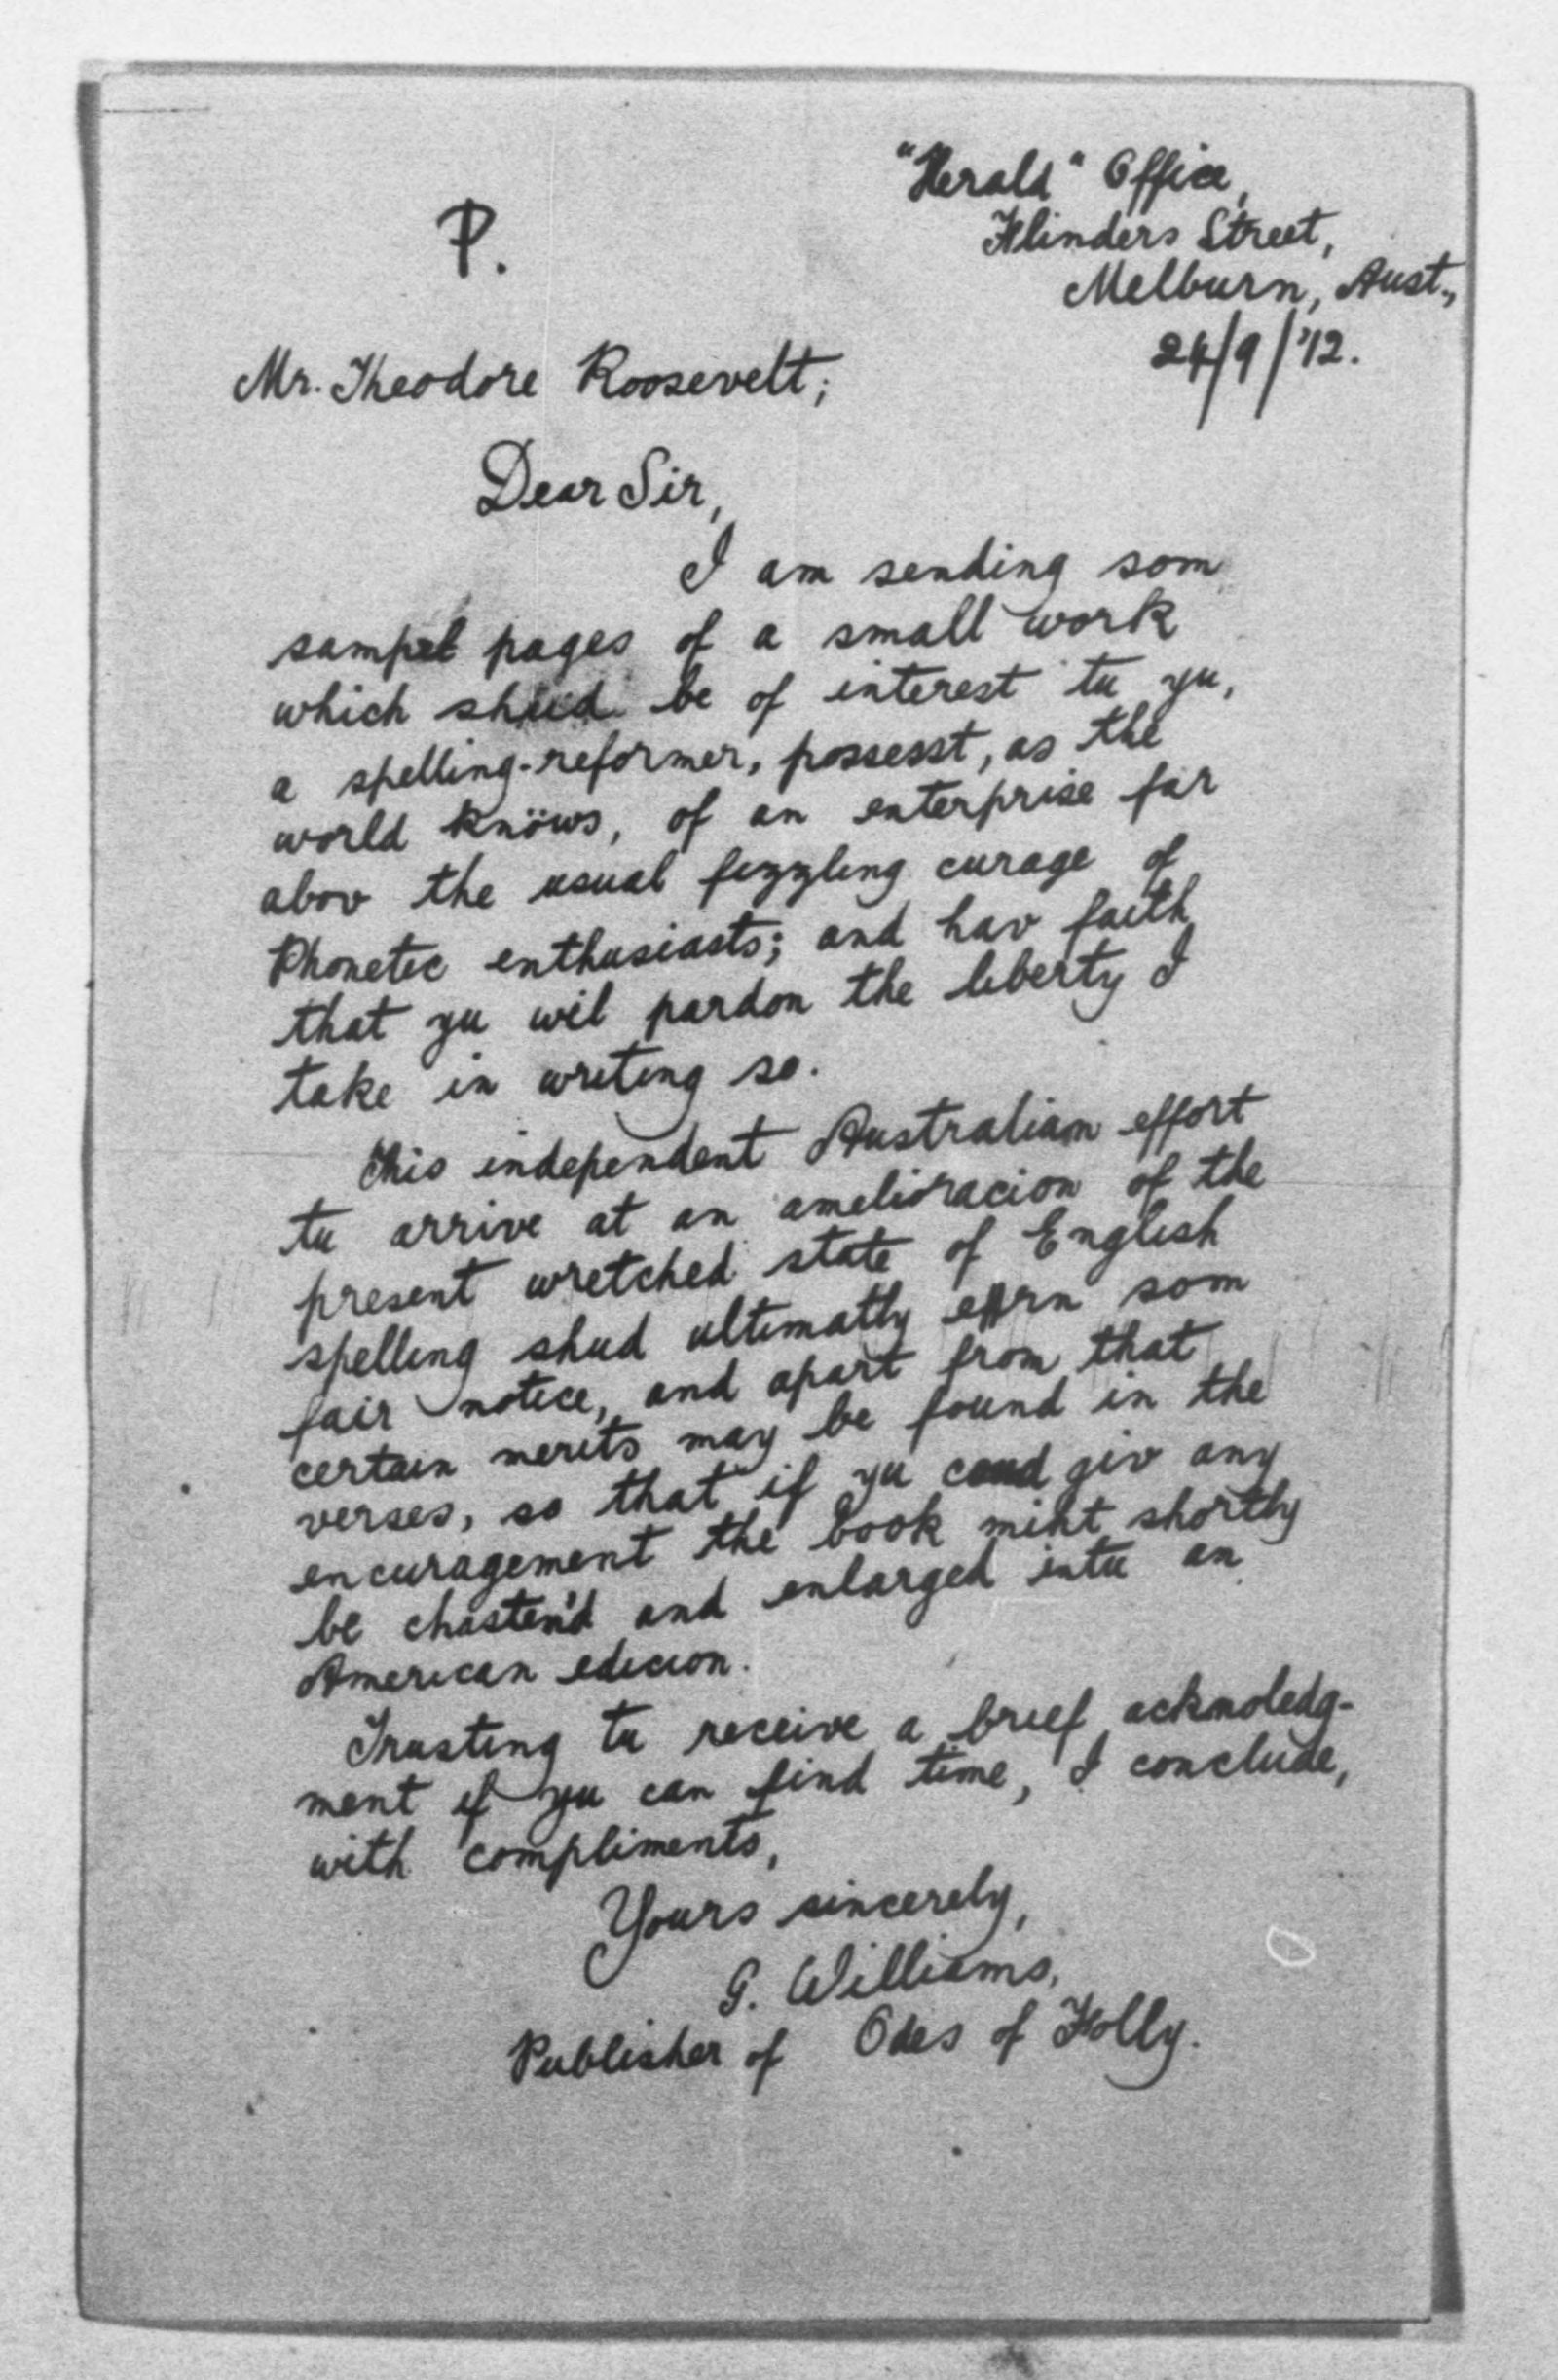 "Herald" Office,
Flinders Street,
Melburn, Aust.,
24/9/'12.
P.
Mr. Theodore Roosevelt;
Dear Sir,
I am sending som
sampel pages of a small work
which shud be of interest tu yu,
a spelling-reformer, possesst, as the
world knöws, of an enterprise far
abov the usual fizzling curage of
Phonetic enthusiasts; and hav faith
that yu wil pardon the liberty I
take in writing so.
This independent Australian effort
tu arrive at an amelioracion of the
present wretched state of English
spelling shud ultimatly ern som
fair notice, and apart from that
certain merits may be found in the
verses, so that if yu cud giv any
encuragement the book miht shortly
be chasten'd and enlarged intu an
American edicion.
Trusting tu receive a brief acknoledg-
ment if yu can find time, I conclude,
with compliments,
Yours sincerely,
G. Williams,
Publisher of Odes of Holly.